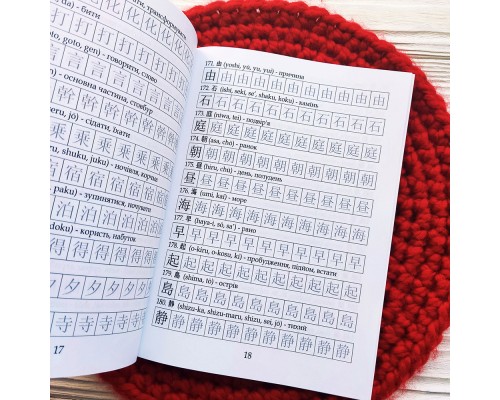 трансформувати
化 化 化 化 化 化
- бити
打 打 打 打 打 打
goto, gen) - говорити, слово
言 言 言 言 言 言
- основна частина, стовбур
幹 幹 幹 幹 幹 幹
jo) - сідати, їхати
乗 乗 乗 乗 乗 乗
shuku, juku) - ночівля, корчма
宿 宿 宿 宿 宿 宿
paku) - зупинятися, ночувати
泊 泊 泊 泊 泊 泊
doku) - користь, набуток
得 得 得 得 得
夕 夕 夕 夕 夕
寺 寺 寺 寺 寺
17
171. 由 (yoshi, yu, yū, yui) - причина
由 由 由 由 由 由 由 由 由 由
172. 石 (ishi, seki, se', shaku, koku) - камінь
石 石 石 石 石 石 石 石 石 石
173. 庭 (niwa, tei) - подвір'я
庭 庭 庭 庭 庭 庭 庭 庭 庭 庭
174. 朝 (asa, chō) - ранок
朝 朝 朝 朝 朝 朝 朝 朝 朝 朝
175. 昼 (hiru, chū) - день, полудень
昼 昼 昼 昼 昼 昼 昼 昼 昼 昼
176. 海 (umi, kai) - море
海 海 海 海 海 海 海 海 海 海
177. 早 (haya-i, sō, sa') - рано
早 早 早 早 早 早 早 早 早 早
178. 起 (o-kiru, o-kosu, ki) - пробудження, підйом, встати
起 起 起 起 起 起 起 起 起 起
179. 島 (shima, tō) - острів
島 島 島 島 島 島 島 島 島 島
180. 静 (shizu-ka, shizu-maru, shizu, sei, jō) - тихий
静 静 静 静 静 静 静 静 静 静
18